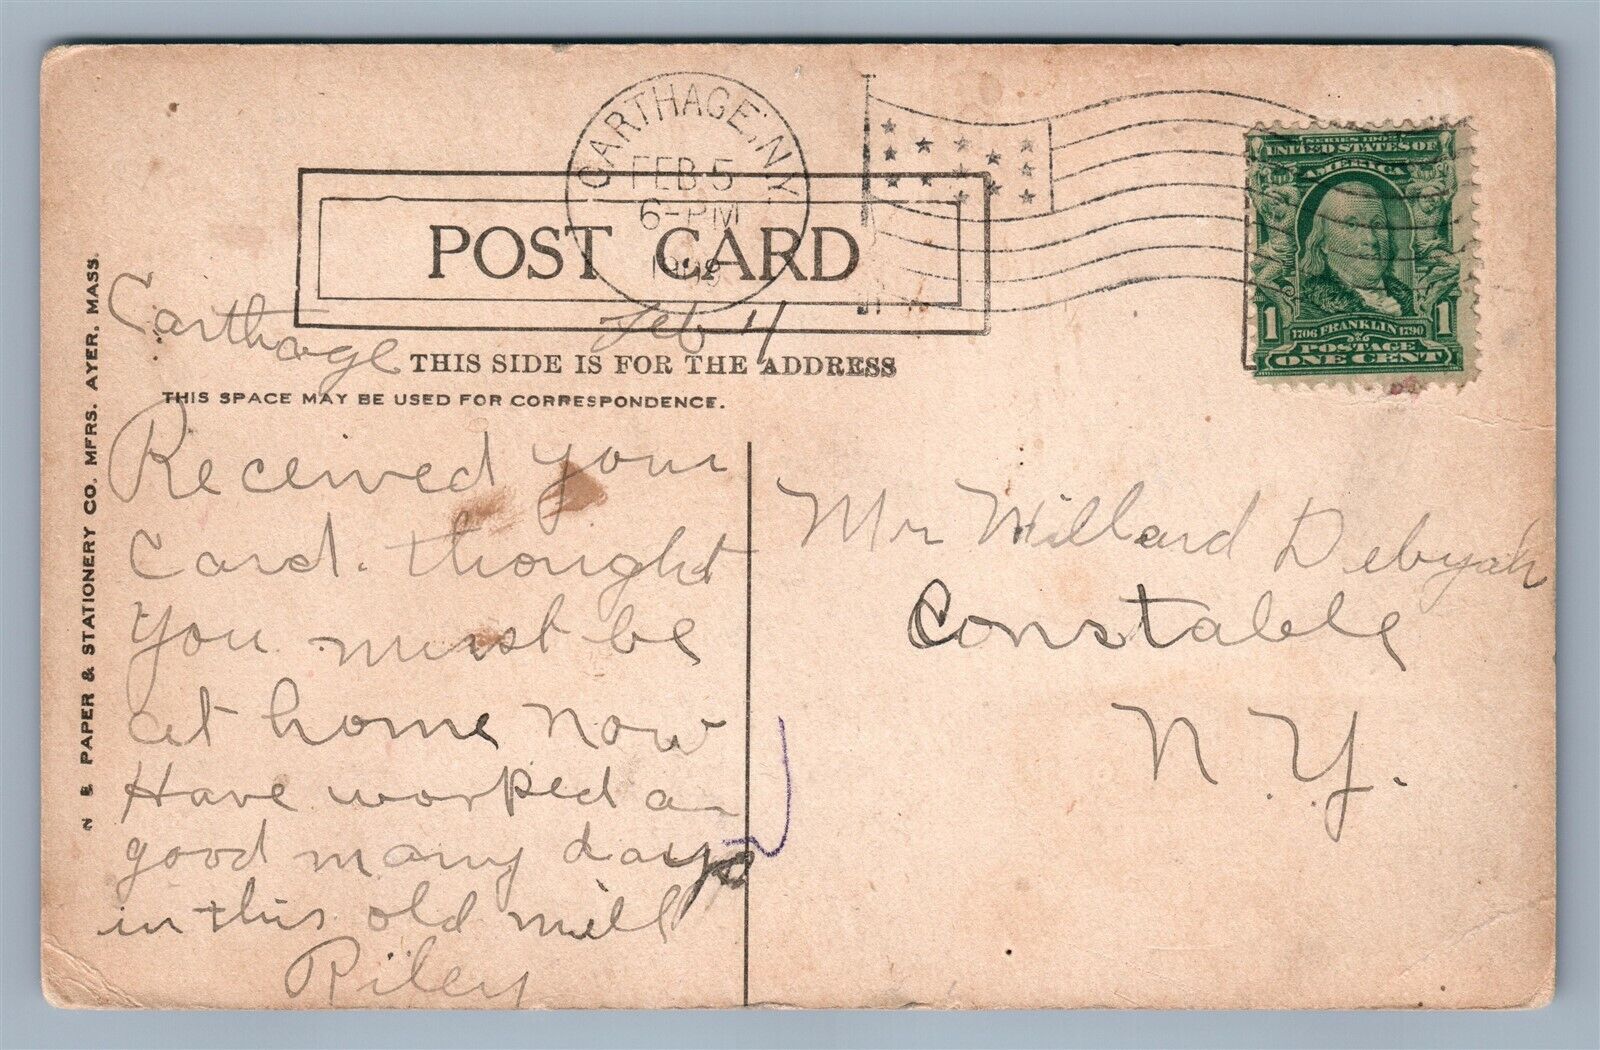 CARTHAGE, N.Y.
FEB 5
6-PM
SERIES 1902
UNITED STATES OF
AMERICA
1706 FRANKLIN 1790
1 1
POSTAGE
ONE CENT
POST CARD
Carthage Feb 4
THIS SIDE IS FOR THE ADDRESS
THIS SPACE MAY BE USED FOR CORRESPONDENCE.
Received your
Card. thought
you must be
at home now
Have worked a
good many days
in this old mill
Riley
Mr Willard Debyah
Constable
N. Y.
N E PAPER & STATIONERY CO. MFRS. AYER, MASS.